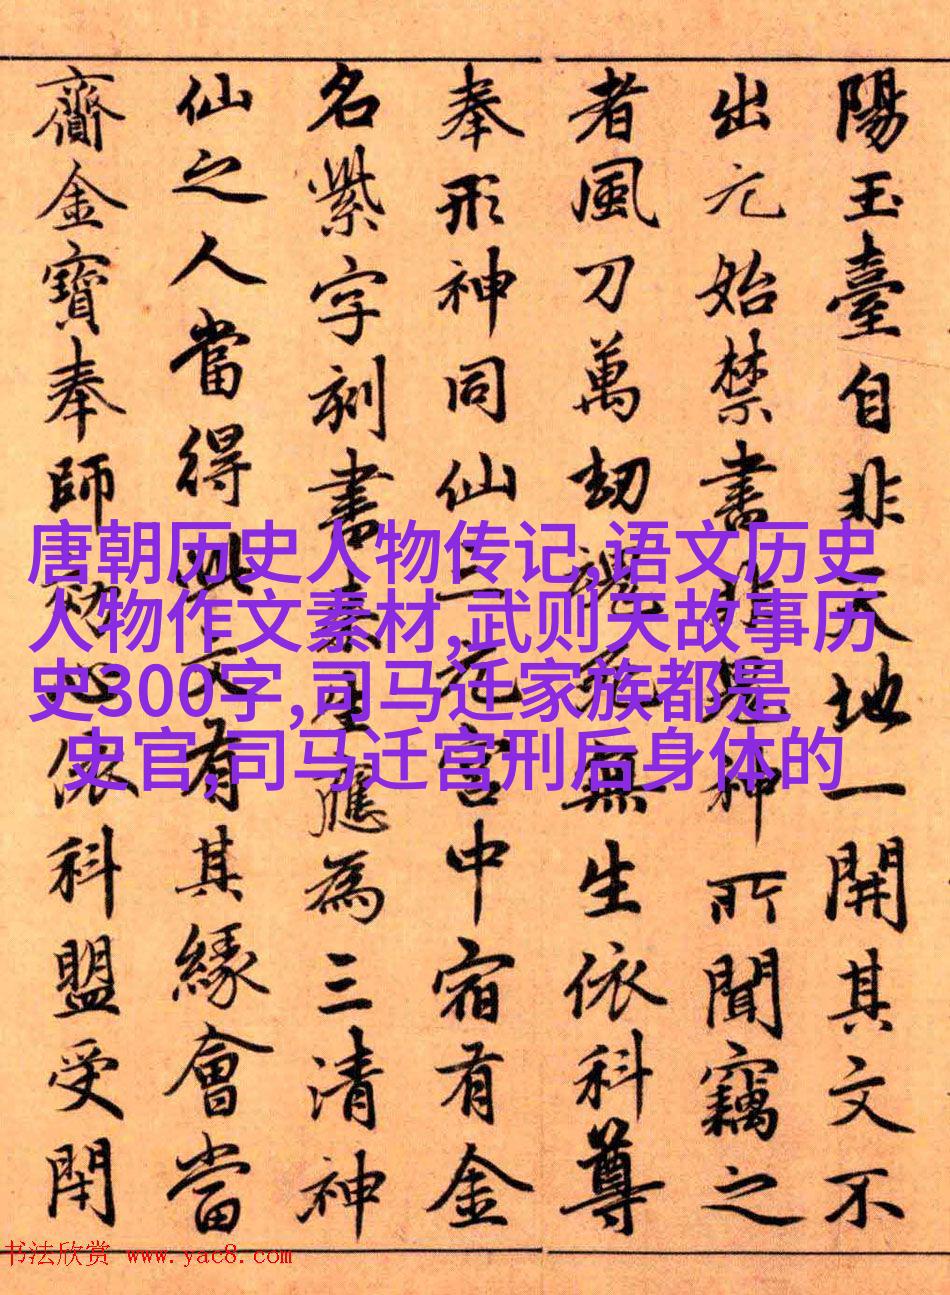 陽玉臺自非天地一開其文不
出元始禁書非鬼神所聞竊之
者風刀萬劫魂死無生依科尊
奉形神同仙三元宮中宿有金
名紫字刻書生應為三清神
仙之人當得此文有其緣會當
齎金寶奉師心依科盟受閇
唐朝历史人物传记,语文历史
人物作文素材,武则天故事历
史300字,司马迁家族都是
史官,司马迁宫刑后身体的
书法欣赏 www.yac8.com